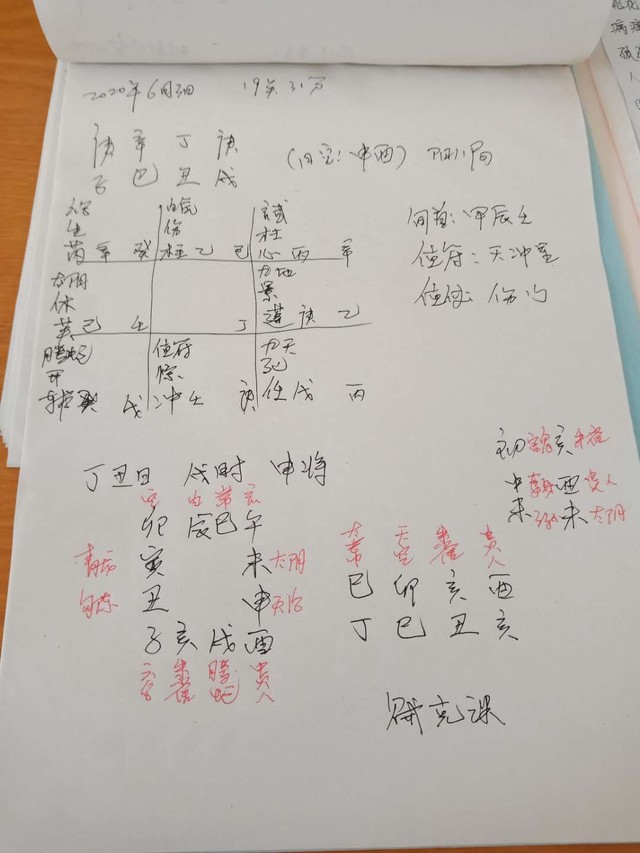 2020年6月3日 19点31分
庚 辛 丁 庚
子 巳 丑 戌
(旬空:申酉) 阳1局
六合 白虎 玄武
生 伤 杜
芮 辛 癸 柱 乙 己 心 丙 辛
太阴 九地
休 景
英 己 壬 丁 蓬 庚 乙
腾蛇 值符 九天
开 惊 死
戊 冲 壬 庚 任 戊 丙
旬首:甲辰壬
值符:天冲星
值使:伤门
丁丑日 戌时 申将
空 白 常 玄
卯 辰 巳 午
青龙 寅 未 太阴
勾陈 丑 申 天后
子 亥 戌 酉
六合 朱雀 腾蛇 贵人
初 亥 朱雀
中 酉 贵人
末 未 太阴
太常 天空 朱雀 贵人
巳 卯 亥 酉
丁 巳 丑 亥
贼克课